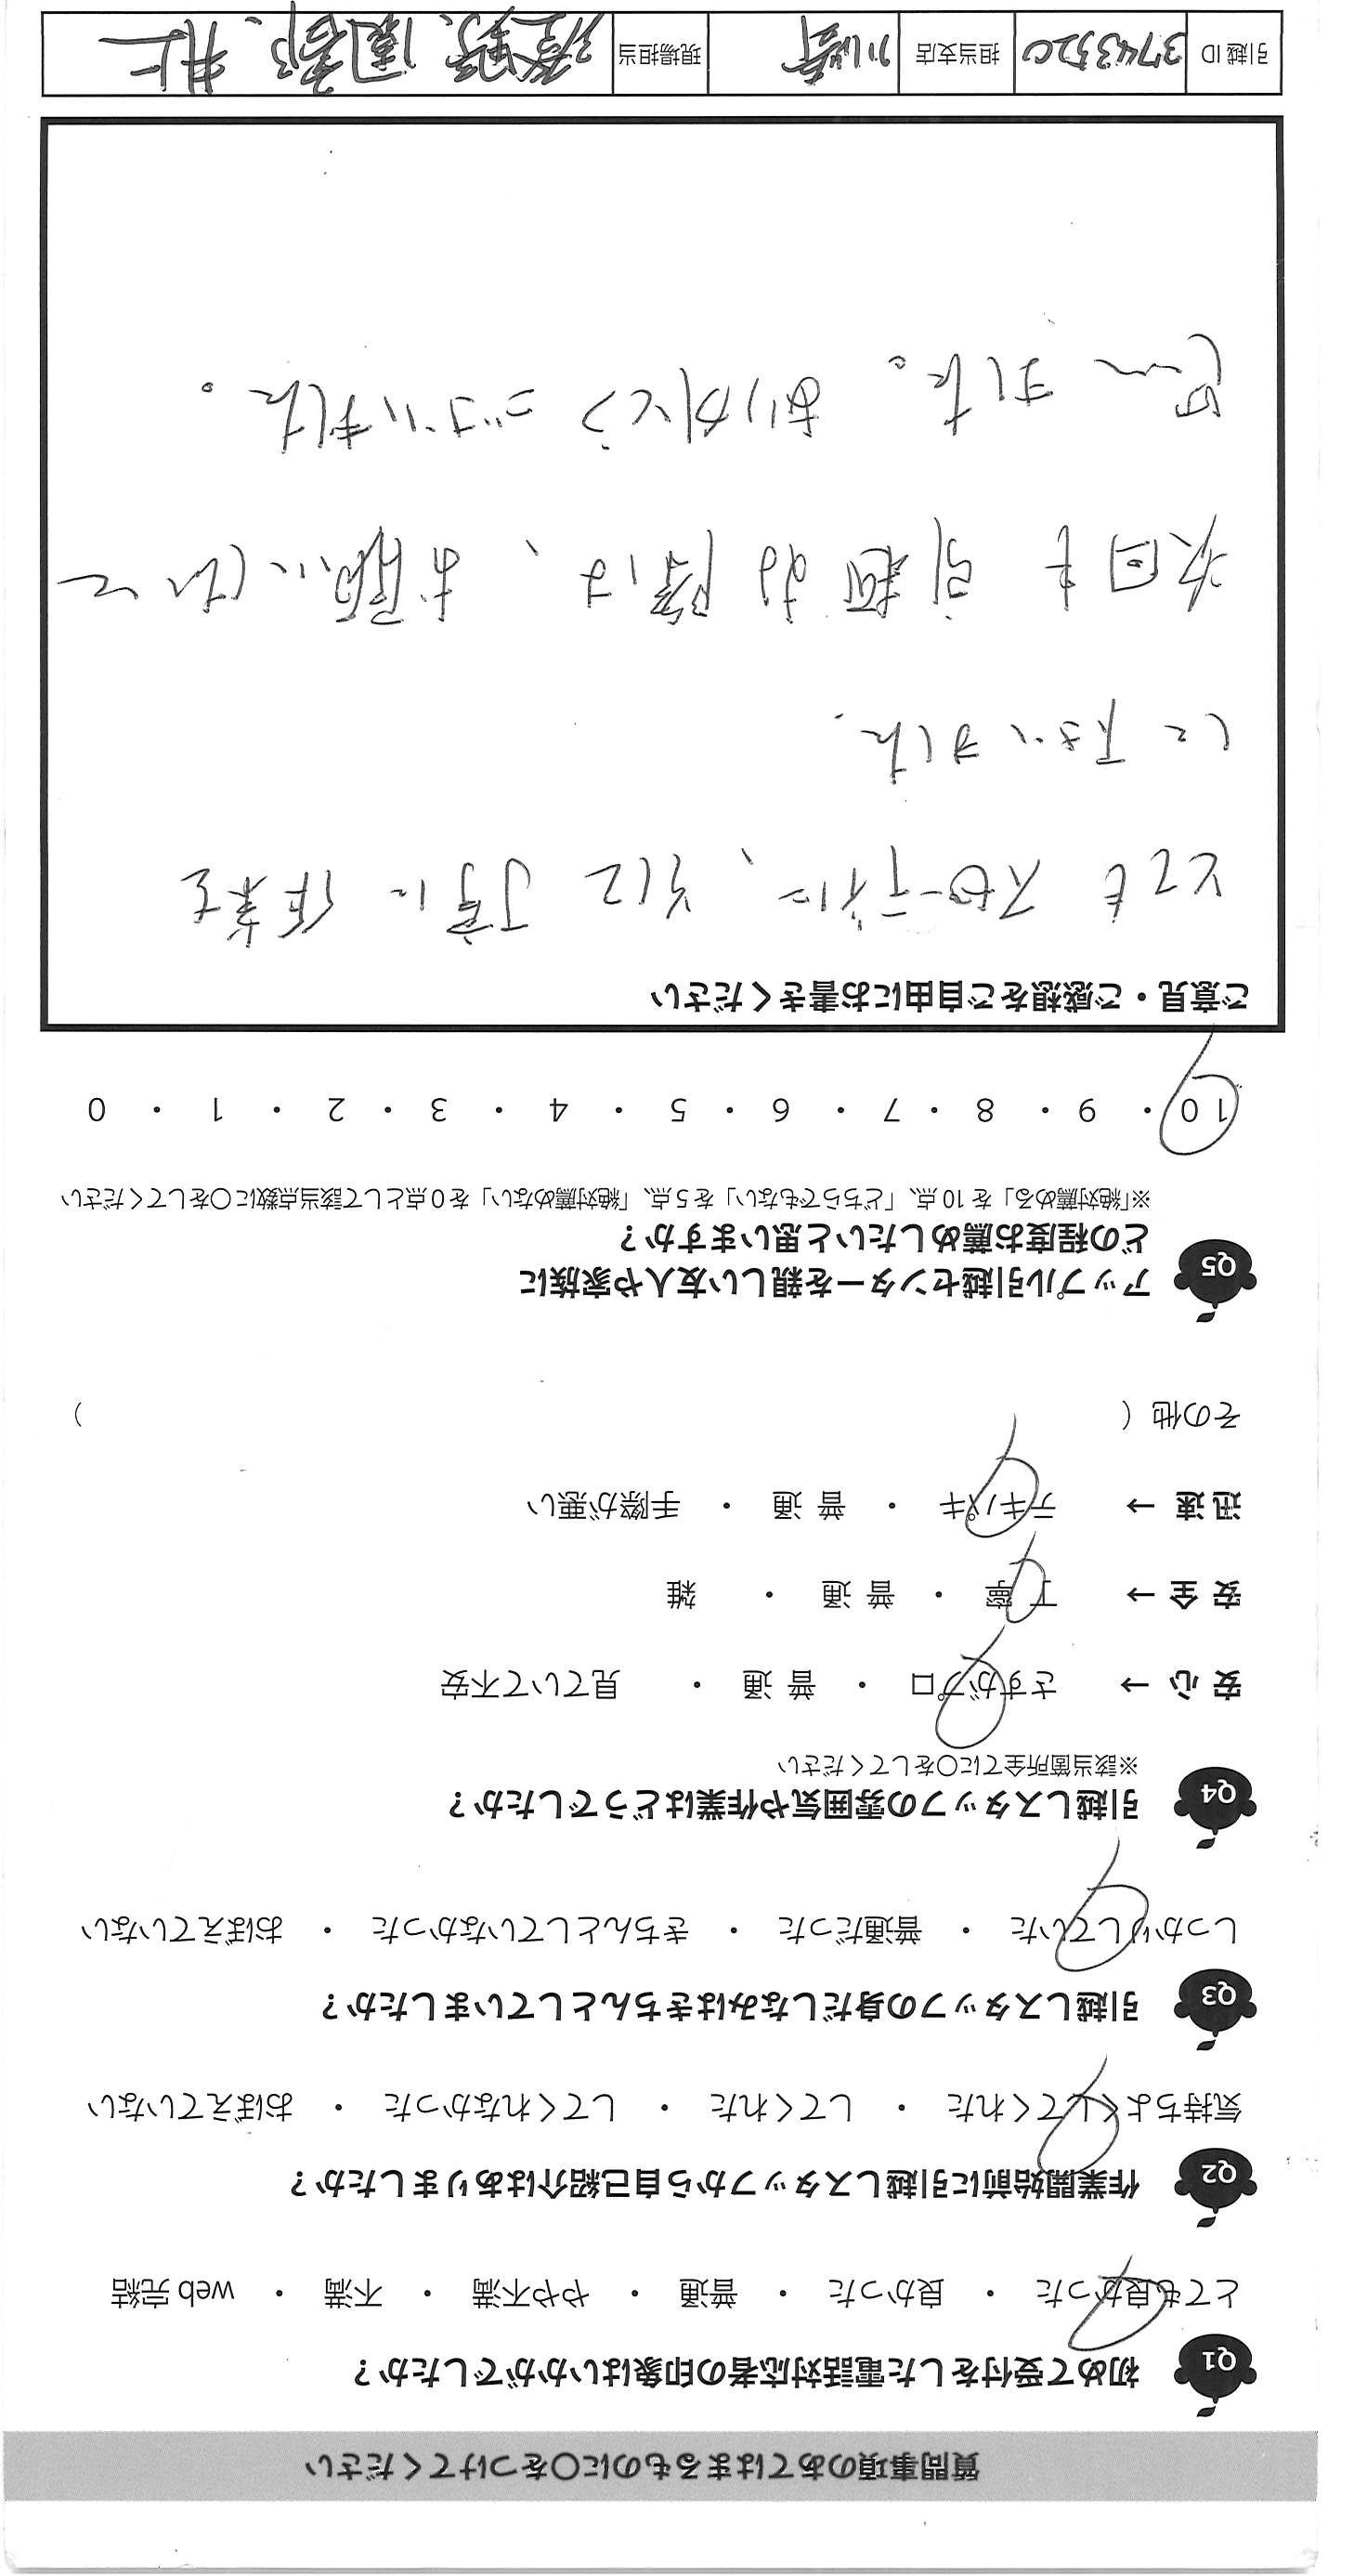 質問事項のあてはまるものに〇をつけてください
Q1 初めて受付をした電話対応者の印象はいかがでしたか？
とても良かった ・ 良かった ・ 普通 ・ やや不満 ・ 不満 ・ web 完結
Q2 作業開始前に引越しスタッフから自己紹介はありましたか？
気持ちよくしてくれた ・ してくれた ・ してくれなかった ・ おぼえていない
Q3 引越しスタッフの身だしなみはきちんとしていましたか？
しっかりしていた ・ 普通だった ・ きちんとしていなかった ・ おぼえていない
Q4 引越しスタッフの雰囲気や作業はどうでしたか？
※該当箇所全てに〇をしてください
安心 → さすがプロ ・ 普通 ・ 見ていて不安
安全 → 丁寧 ・ 普通 ・ 雑
迅速 → テキパキ ・ 普通 ・ 手際が悪い
その他（ ）
Q5 アップル引越センターを親しい友人や家族に
どの程度お薦めしたいと思いますか？
※「絶対薦める」を 10 点、「どちらでもない」を 5 点、「絶対薦めない」を 0 点として該当点数に〇をしてください
10 ・ 9 ・ 8 ・ 7 ・ 6 ・ 5 ・ 4 ・ 3 ・ 2 ・ 1 ・ 0
ご意見・ご感想をご自由にお書きください
とても スピーディに、そして 丁寧に 作業を
して下さいました.
次回も 引越の際は、お願いしたいと
思いました。 ありがとう ございました。
引越 ID 3743520 担当支店 川崎 現場担当 園部、井上